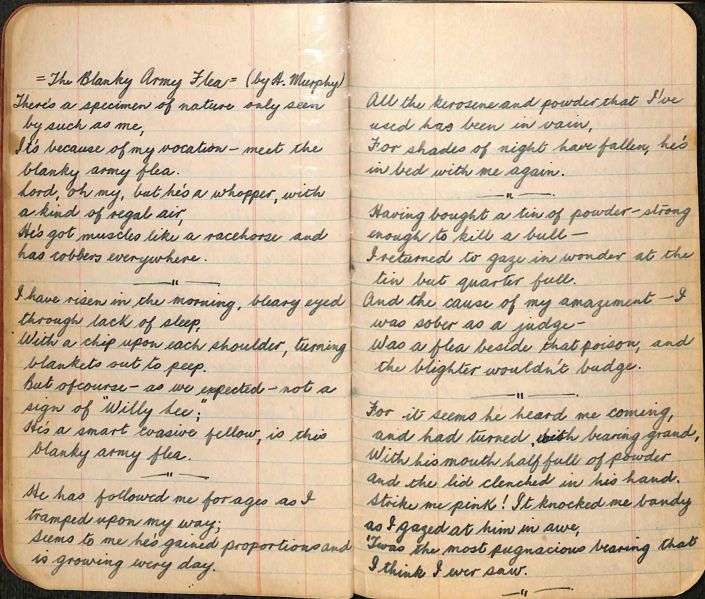 = The Blanky Army Flea = (by A. Murphy)
There's a specimen of nature only seen
by such as me,
It's because of my vocation - meet the
blanky army flea.
Lord, oh my, but he's a whopper, with
a kind of regal air,
He's got muscles like a racehorse and
has cobbers everywhere.
— " —
I have risen in the morning, bleary eyed
through lack of sleep,
With a chip upon each shoulder, turning
blankets out to peep.
But ofcourse - as we expected - not a
sign of "Willy Lee";
He's a smart evasive fellow, is this
blanky army flea.
— " —
He has followed me for ages as I
tramped upon my way;
Seems to me he's gained proportions and
is growing every day.
All the kerosene and powder that I've
used has been in vain,
For shades of night have fallen, he's
in bed with me again.
— " —
Having bought a tin of powder - strong
enough to kill a bull -
I returned to gaze in wonder at the
tin but quarter full.
And the cause of my amazement - I
was sober as a judge -
Was a flea beside that poison, and
the blighter wouldn't budge.
— " —
For it seems he heard me coming,
and had turned, with bearing grand,
With his mouth half full of powder
and the lid clenched in his hand.
Strike me pink! It knocked me bandy
as I gazed at him in awe,
'Twas the most pugnacious bearing that
I think I ever saw.
— " —